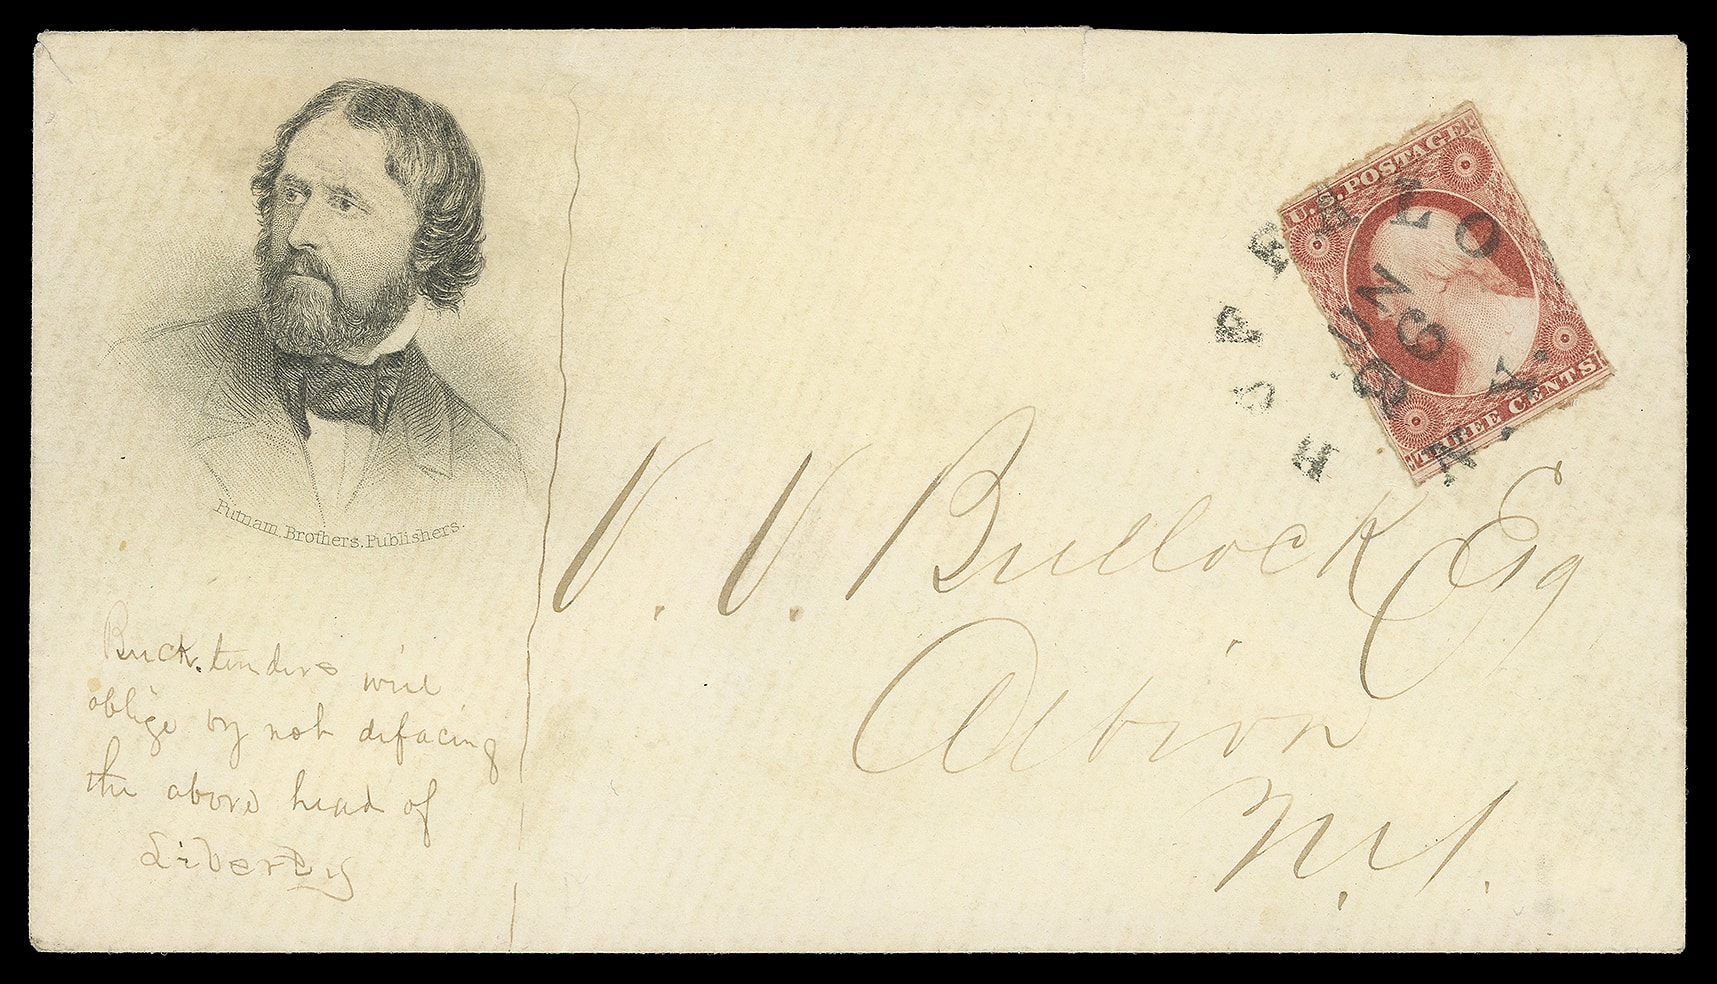 U.S. POSTAGE
THREE CENTS
BUFFALO
N.Y.
Putnam. Brothers. Publishers.
V. V. Bullock Esq
Albion
Buck. tenders will
oblige by not defacing
the above head of
Liberty